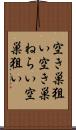 空き巣狙
い空き巣
ねらい空
巣狙い